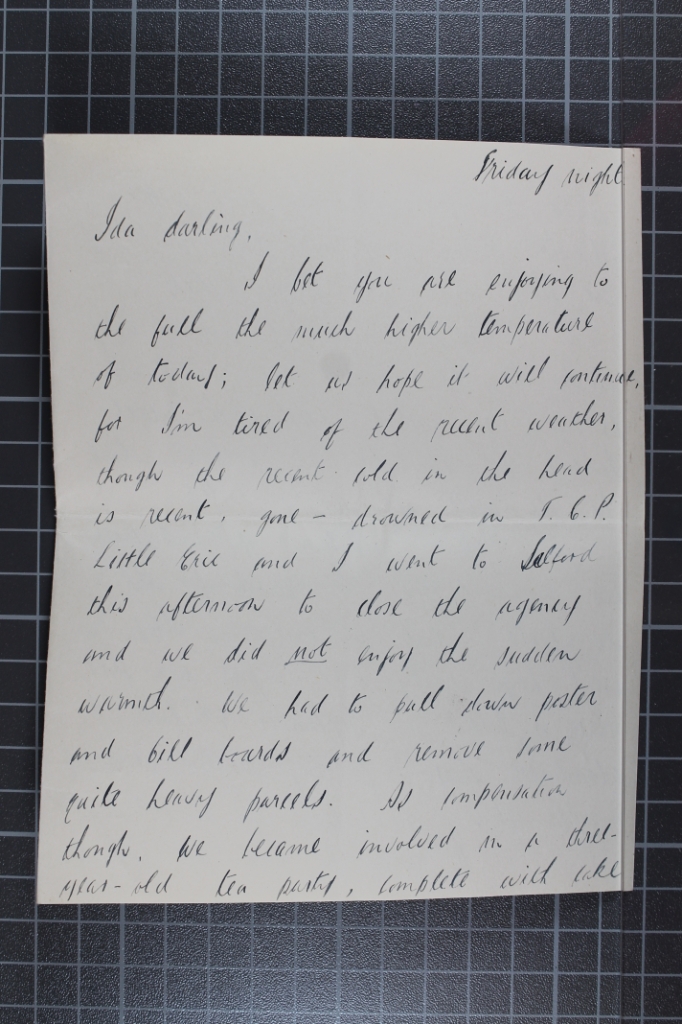 Friday night
Ida darling,
I bet you are enjoying to
the full the much higher temperature
of today; let us hope it will continue,
for I'm tired of the recent weather,
though the recent cold in the head
is recent, gone - drowned in T.C.P.
Little Eric and I went to Salford
this afternoon to close the agency
and we did not enjoy the sudden
warmth. We had to pull down poster
and bill boards and remove some
quite heavy parcels. As compensation
though, we became involved in a three-
year-old tea party, complete with cake